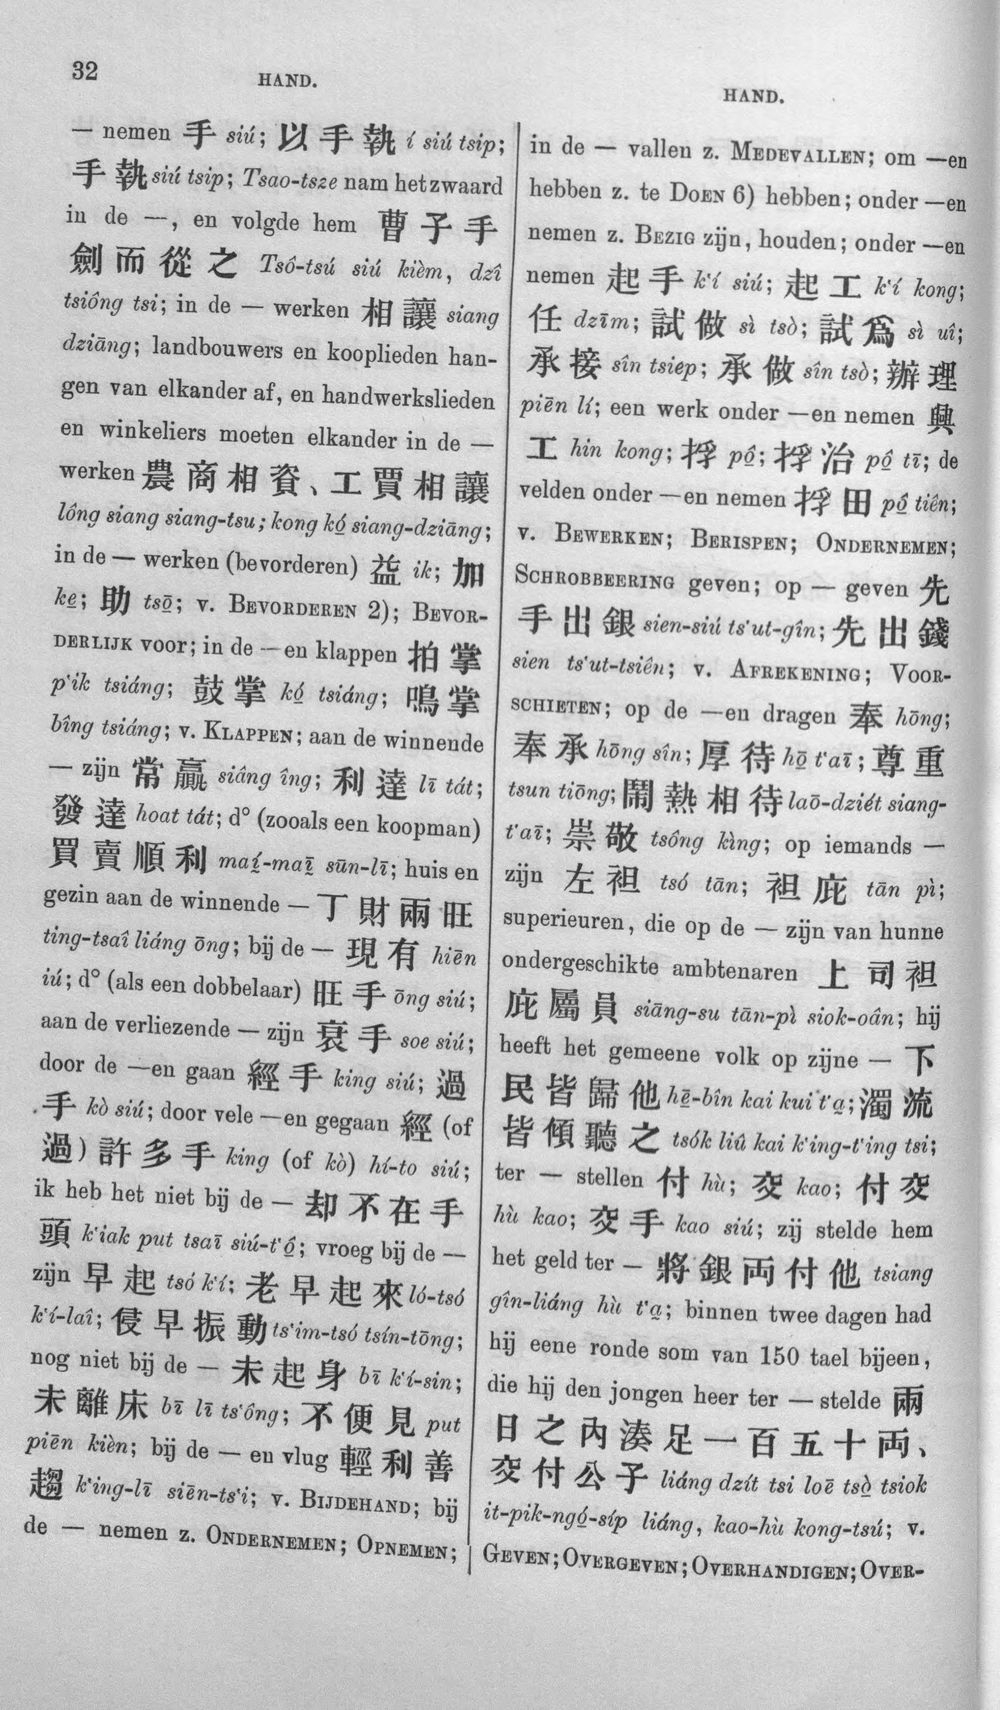 32
HAND.
— nemen 手 siú; 以手執 í siú tsip;
手執 siú tsip; Tsao-tsze nam het zwaard
in de —, en volgde hem 曹子手
劍而從之 Tsô-tsú siú kièm, dzî
tsiông tsi; in de — werken 相讓 siang
dziāng; landbouwers en kooplieden han-
gen van elkander af, en handwerkslieden
en winkeliers moeten elkander in de —
werken 農商相資、工賈相讓
lông siang siang-tsu; kong kó̤ siang-dziāng;
in de — werken (bevorderen) 益 ik; 加
ke̤; 助 tsō̤; v. BEVORDEREN 2); BEVOR-
DERLIJK voor; in de — en klappen 拍掌
p‘ik tsiáng; 鼓掌 kó̤ tsiáng; 鳴掌
bîng tsiáng; v. KLAPPEN; aan de winnende
— zijn 常贏 siâng îng; 利達 lī tát;
發達 hoat tát; d° (zooals een koopman)
買賣順利 maí̤-maī̤ sūn-lī; huis en
gezin aan de winnende — 丁財兩旺
ting-tsaî liáng ōng; bij de — 現有 hiēn
iú; d° (als een dobbelaar) 旺手 ōng siú;
aan de verliezende — zijn 衰手 soe siú;
door de —en gaan 經手 king siú; 過
手 kò siú; door vele —en gegaan 經 (of
過) 許多手 king (of kò) hí-to siú;
ik heb het niet bij de — 却不在手
頭 k‘iak put tsaī siú-t‘ô̤; vroeg bij de —
zijn 早起 tsó k‘í; 老早起來 ló-tsó
k‘í-laî; 侵早振動 ts‘im-tsó tsín-tōng;
nog niet bij de — 未起身 bī k‘í-sin;
未離床 bī lī ts‘ông; 不便見 put
piēn kièn; bij de — en vlug 輕利善
趨 k‘ing-lī siēn-ts‘i; v. BIJDEHAND; bij
de — nemen z. ONDERNEMEN; OPNEMEN;
HAND.
in de — vallen z. MEDEVALLEN; om —en
hebben z. te DOEN 6) hebben; onder —en
nemen z. BEZIG zijn, houden; onder —en
nemen 起手 k‘í siú; 起工 k‘í kong;
任 dzīm; 試做 sì tsò; 試爲 sì uî;
承接 sîn tsiep; 承做 sîn tsò; 辦理
piēn lí; een werk onder —en nemen 興
工 hin kong; 捊 pô̤; 捊治 pô̤ tī; de
velden onder —en nemen 捊田 pô̤ tiên;
v. BEWERKEN; BERISPEN; ONDERNEMEN;
SCHROBBEERING geven; op — geven 先
手出銀 sien-siú ts‘ut-gîn; 先出錢
sien ts‘ut-tsiên; v. AFREKENING; VOOR-
SCHIETEN; op de —en dragen 奉 hōng;
奉承 hōng sîn; 厚待 hō̤ t‘aī; 尊重
tsun tiōng; 鬧熱相待 laō-dziét siang-
t‘aī; 崇敬 tsông kìng; op iemands —
zijn 左袒 tsó tān; 袒庇 tān pì;
superieuren, die op de — zijn van hunne
ondergeschikte ambtenaren 上司袒
庇屬員 siāng-su tān-pì siok-oân; hij
heeft het gemeene volk op zijne — 下
民皆歸他 hē̤-bîn kai kui t‘a̤; 濁流
皆傾聽之 tsók liû kai k‘ing-t‘ing tsi;
ter — stellen 付 hù; 交 kao; 付交
hù kao; 交手 kao siú; zij stelde hem
het geld ter — 將銀両付他 tsiang
gîn-liáng hù t‘a̤; binnen twee dagen had
hij eene ronde som van 150 tael bijeen,
die hij den jongen heer ter — stelde 兩
日之內湊足一百五十両、
交付公子 liáng dzít tsi loē tsò̤ tsiok
it-pik-ngó̤-síp liáng, kao-hù kong-tsú; v.
GEVEN; OVERGEVEN; OVERHANDIGEN; OVER-